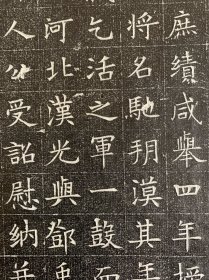 庶績咸舉四年授
將名馳朔漠其年
乞活之軍一鼓而
河北漢光與鄧禹
人公受詔慰納并